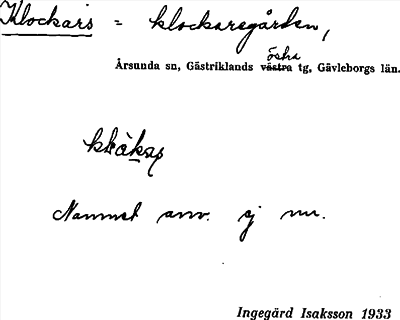 Klockars = klockaregården,
östra
Årsunda sn, Gästriklands västra tg, Gävleborgs län.
Namnet anv. ej nu.
Ingegärd Isaksson 1933